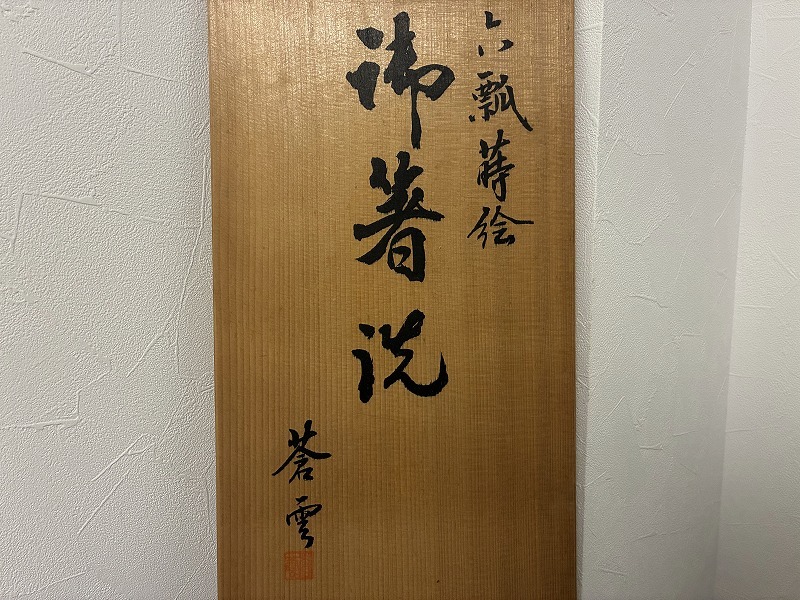 六瓢蒔絵
御箸洗
蒼雲